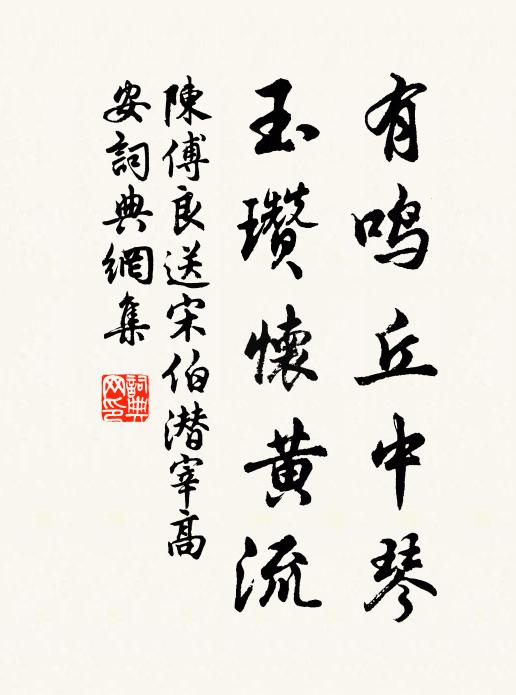 有鸣丘中琴
玉瓚懷黄流
陳傅良送宋伯潛宰高
安詞典網集
詞典
网印